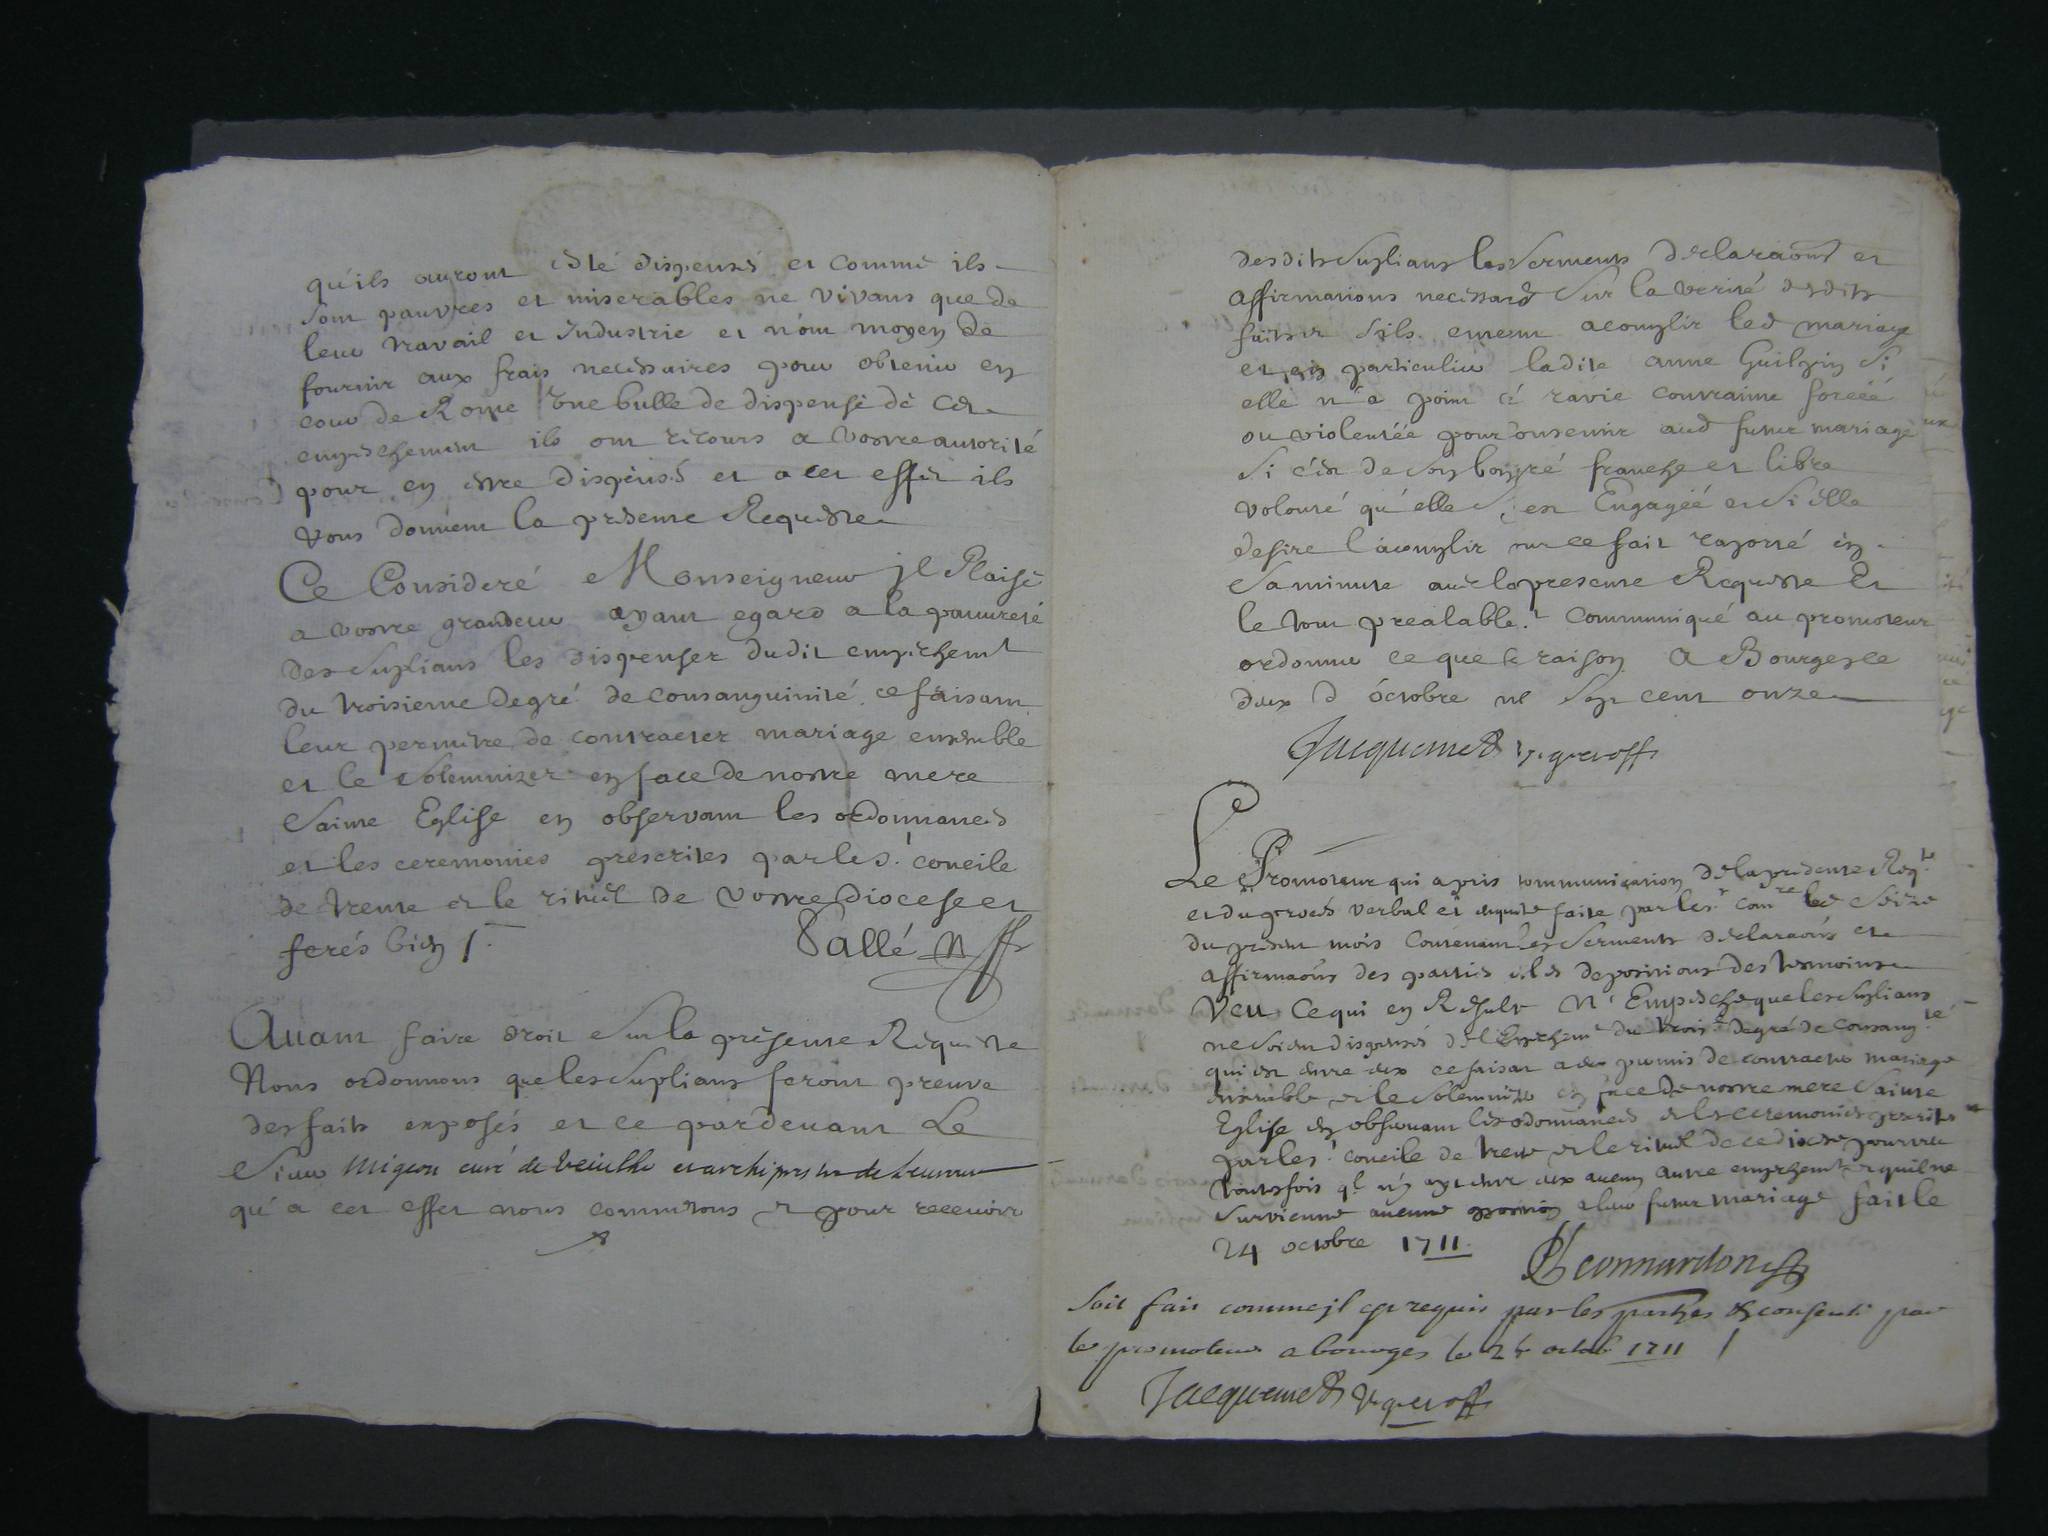 qu'ils auront esté dispensés et comme ils
sont pauvres et miserables ne vivans que de
leur travail et Industrie et n'ont moyen de
fournir aux frais necessaires pour obtenir en
cour de Rome une bulle de dispense de cet
empeschement ils ont recours a vostre autorité
pour en estre dispensés et a cet effet ils
vous donnent la presente Requeste
Ce Consideré Monseigneur jl Plaise
a vostre grandeur ayant egard a la pauvreté
des suplians les dispenser dudit empechemt
du troisieme degré de consanguinité ce faisant
leur permettre de contracter mariage ensemble
et le solemnizer en face de nostre mere
Sainte Eglise en observant les ordonnances
et les ceremonies prescrites par le s.t concile
de trente et le rituel de vostre diocese et
ferés bien
Vallé
Avant faire droit sur la presente Requeste
Nous ordonnons que les suplians feront preuve
des faits exposés et ce pardevant Le
Sieur Migeon curé de et archiprestre de
qu'a cet effet nous commettons et pour recevoir
desdits suplians les serments declaraons et
affirmations necessaires sur la verité desdits
faits et s'ils entent acomplir led mariage
et en particulier ladite anne Guilpin si
elle n'a point été ravie contrainte forcéé
ou violentéé pour consentir aud futur mariage
si c'est de son bon gré franche et libre
volonté qu'elle s'y est Engagéé et si elle
desire l'acomplir sur ce fait raporté en
sa minute avec la presente Requeste Et
le tout prealable.t communiqué au promoteur
ordonner ce que de raison A Bourges ce
deux d octobre mil sept cent onze
Jacquemet vic. g. et off.
Le Promoteur qui a pris communication de la presente Req.te
et du proces verbal et enqueste faite par le s.r com.re le seize
du present mois Contenant les serments declaraons et
affirmaons des parties et les depositions des tesmoins
Veu Ce qui en Resulte N'Empesche que les suplians
ne soient dispensés de l'Empechem.t du trois.e degré de consang.té
qui est entre eux ce faisant a eux permis de contracter mariage
ensemble et le solemnizer en face de nostre mere Sainte
Eglise en observant les ordonnances et les ceremonies prescrites
par le s.t concile de trente et le rituel de ce diocese pourveu
toutesfois q.l n'y ayt entre eux aucun autre empechem.t et qu'il ne
survienne aucune oposition a leur futur mariage fait le
24 octobre 1711
Leonnardon
Soit fait comme jl est requis par les parties & consenti par
le promoteur a bourges le 24 octob. 1711
Jacquemet v. g. et off.